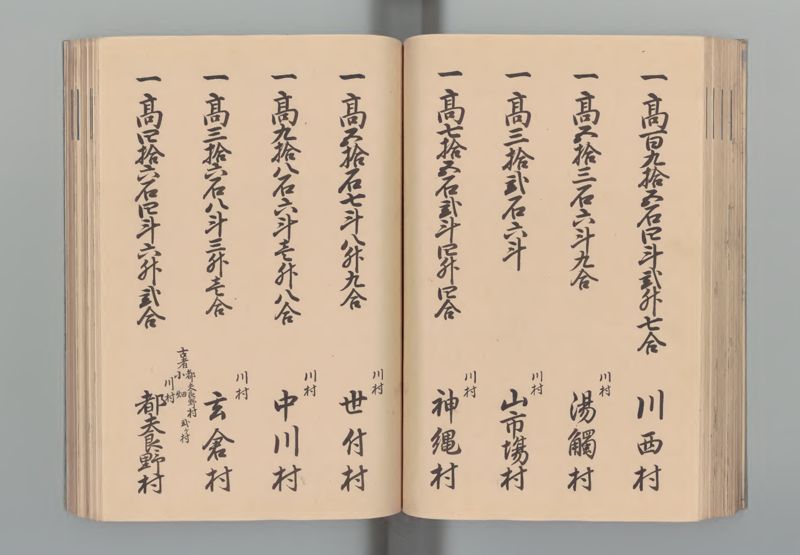 一高百九拾五石四斗弐升七合
川西村
一高五拾三石六斗九合
川村
湯觸村
一高三拾弐石六斗
川村
山市場村
一高七拾五石弐斗四升四合
川村
神縄村
一高五拾石七斗八升九合
川村
世付村
一高九拾八石六斗壱升八合
川村
中川村
一高三拾六石八斗三升壱合
川村
玄倉村
一高四拾六石四斗六升弐合
古者都夫良野村
小畑
弐ヶ村
川村
都夫良野村